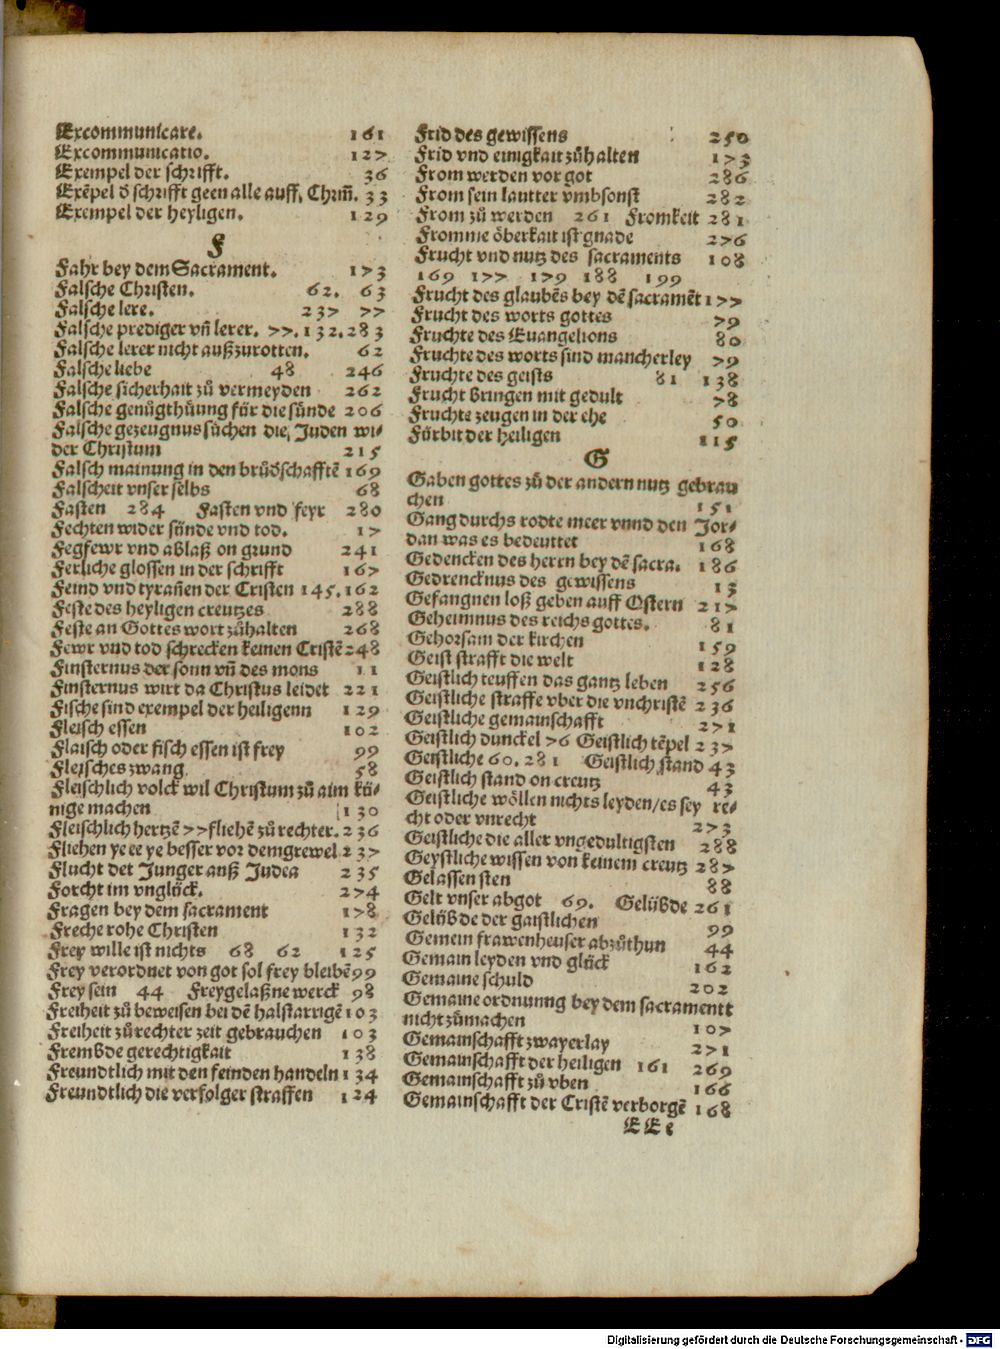 Excommunicare. 161
Excommunicatio. 127
Exempel der schrifft. 36
Exēpel d̄ schrifft geen alle auff, Chriſt̄. 33
Exempel der heyligen. 129
F
Fahr bey dem Sacrament. 173
Falsche Christen. 62. 63
Falsche lere. 237 77
Falsche prediger vn̄ lerer. 77. 132. 283
Falsche lerer nicht außzurotten. 62
Falsche liebe 48 246
Falsche sicherhait zů vermeyden 262
Falsche genůgthůung für die sünde 206
Falsche gezeugnus sůchen die, Juden wi-
der Christum 215
Falsch mainung in den brůdschafftē 169
Falscheit vnser selbs 68
Fasten 284 Fasten vnd feyr 280
Fechten wider sünde vnd tod. 17
Fegfewr vnd ablaß on grund 241
Ferliche glossen in der schrifft 167
Feind vnd tyrañen der Cristen 145. 162
Feste des heyligen creutzes 288
Feste an Gottes wort zůhalten 268
Fewr vnd tod schrecken keinen Cristē 248
Finsternus der sonn vn̄ des mons 11
Finsternus wirt da Christus leidet 221
Fische sind exempel der heiligenn 129
Fleisch essen 102
Flaisch oder fisch essen ist frey 99
Fleisches zwang 58
Fleischlich volck wil Christum zů aim kü-
nige machen 130
Fleischlich hertzē 77 fliehē zů rechter. 236
Fliehen ye ee ye besser vor dem grewel 237
Flucht det Junger auß Judea 235
Forcht im vnglück. 274
Fragen bey dem sacrament 178
Freche rohe Christen 132
Frey wille ist nichts 68 62 125
Frey verordnet von got sol frey bleibē 99
Frey sein 44 Freygelaßne werck 98
Freiheit zů beweisen bei dē halstarrigē 103
Freiheit zů rechter zeit gebrauchen 103
Frembde gerechtigkait 138
Freundtlich mit den feinden handeln 134
Freundtlich die verfolger straffen 124
Frid des gewissens 250
Frid vnd einigkait zůhalten 173
From werden vor got 286
From sein lautter vmbsonst 282
From zů werden 261 Fromkeit 281
Fromme öberkait ist gnade 276
Frucht vnd nutz des sacraments 108
169 177 179 188 199
Frucht des glaubēs bey dē sacramēt 177
Frucht des worts gottes 79
Fruchte des Euangelions 80
Fruchte des worts sind mancherley 79
Fruchte des geists 81 138
Frucht bringen mit gedult 78
Fruchte zeugen in der ehe 50
Fürbit der heiligen 115
G
Gaben gottes zů der andern nutz gebrau
chen 151
Gang durchs rodte meer vnnd den Jor-
dan was es bedeuttet 168
Gedencken des herrn bey dē sacra. 186
Gedrencknus des gewissens 13
Gefangnen loß geben auff Ostern 217
Geheimnus des reichs gottes. 81
Gehorsam der kirchen 159
Geist strafft die welt 128
Geistlich teuffen das gantz leben 256
Geistliche straffe vber die vnchristē 236
Geistliche gemainschafft 271
Geistlich dunckel 76 Geistlich tēpel 237
Geistliche 60. 281 Geistlich stand 43
Geistlich stand on creutz 43
Geistliche wöllen nichts leyden/es sey re-
cht oder vnrecht 273
Geistliche die aller vngedultigsten 288
Geystliche wissen von keinem creutz 287
Gelassensten 88
Gelt vnser abgot 69. Gelübde 261
Gelübde der gaistlichen 99
Gemein frawenheuser abzůthun 44
Gemain leyden vnd glück 162
Gemaine schuld 202
Gemaine ordnunng bey dem sacramentt
nicht zůmachen 107
Gemainschafft zwayerlay 271
Gemainschafft der heiligen 161 269
Gemainschafft zů vben 166
Gemainschafft der Cristē verborgē 168
EEe
Digitalisierung gefördert durch die Deutsche Forschungsgemeinschaft - DFG